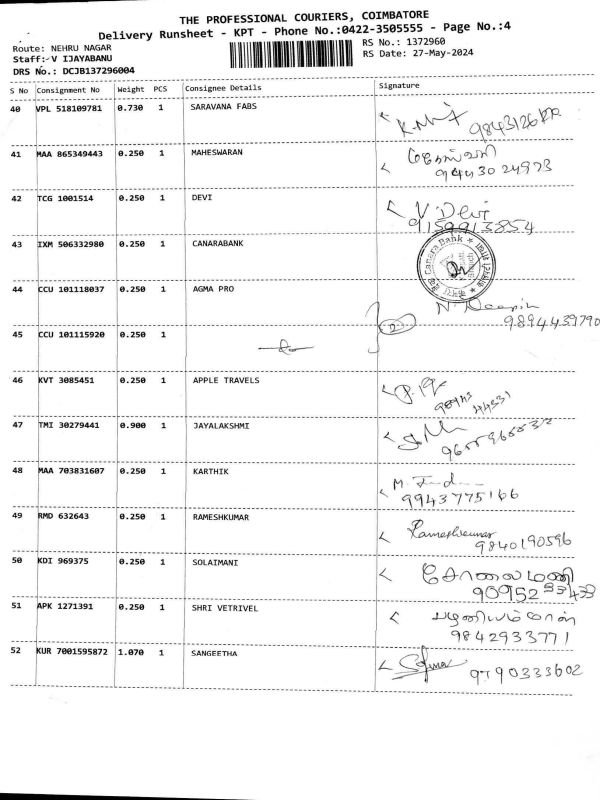 THE PROFESSIONAL COURIERS, COIMBATORE
Delivery Runsheet - KPT - Phone No.:0422-3505555 - Page No.:4
Route: NEHRU NAGAR
RS No.: 1372960
Staff: V IJAYABANU
RS Date: 27-May-2024
DRS No.: DCJB137296004
S No Consignment No Weight PCS Consignee Details Signature
40 VPL 518109781 0.730 1 SARAVANA FABS
41 MAA 865349443 0.250 1 MAHESWARAN
94430 24973
42 TCG 1001514 0.250 1 DEVI V. Devi
9159913854
43 IXM 506332980 0.250 1 CANARABANK
Canara Bank
44 CCU 101118037 0.250 1 AGMA PRO
9894439790
45 CCU 101115920 0.250 1 2
46 KVT 3085451 0.250 1 APPLE TRAVELS
47 TMI 30279441 0.900 1 JAYALAKSHMI
48 MAA 703831607 0.250 1 KARTHIK
9943775166
49 RMD 632643 0.250 1 RAMESHKUMAR Rameshkumar
9840190596
50 KDI 969375 0.250 1 SOLAIMANI சோலைமணி
51 APK 1271391 0.250 1 SHRI VETRIVEL
9842933771
52 KUR 7001595872 1.070 1 SANGEETHA
9790333602